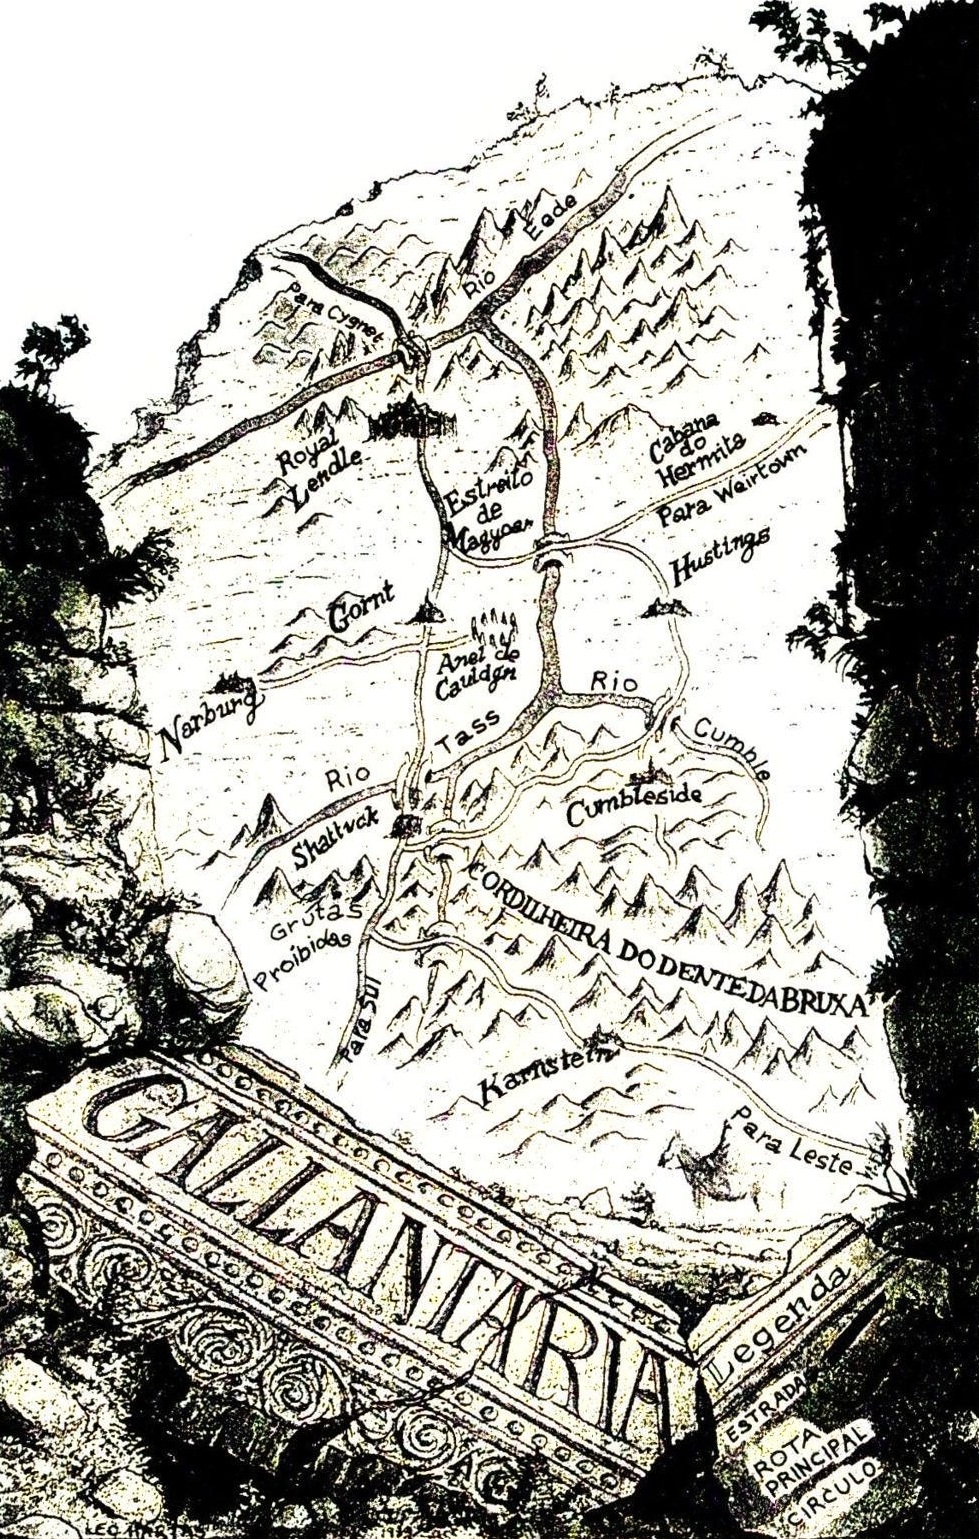 Rio Eede
Para Cygnet
Royal
Lendle
Cabana
do
Hermita
Estreito
de
Para Weirtown
Hustings
Gornt
Anel de
Narburg
Rio
Tass
Cumble
Rio
Cumbleside
Shattuck
Grutas
Proibidas
CORDILHEIRA DO DENTE DA BRUXA
Para Sul
Karnstein
Para Leste
GALLANTARIA
Legenda
ESTRADA
ROTA
PRINCIPAL
CIRCULO